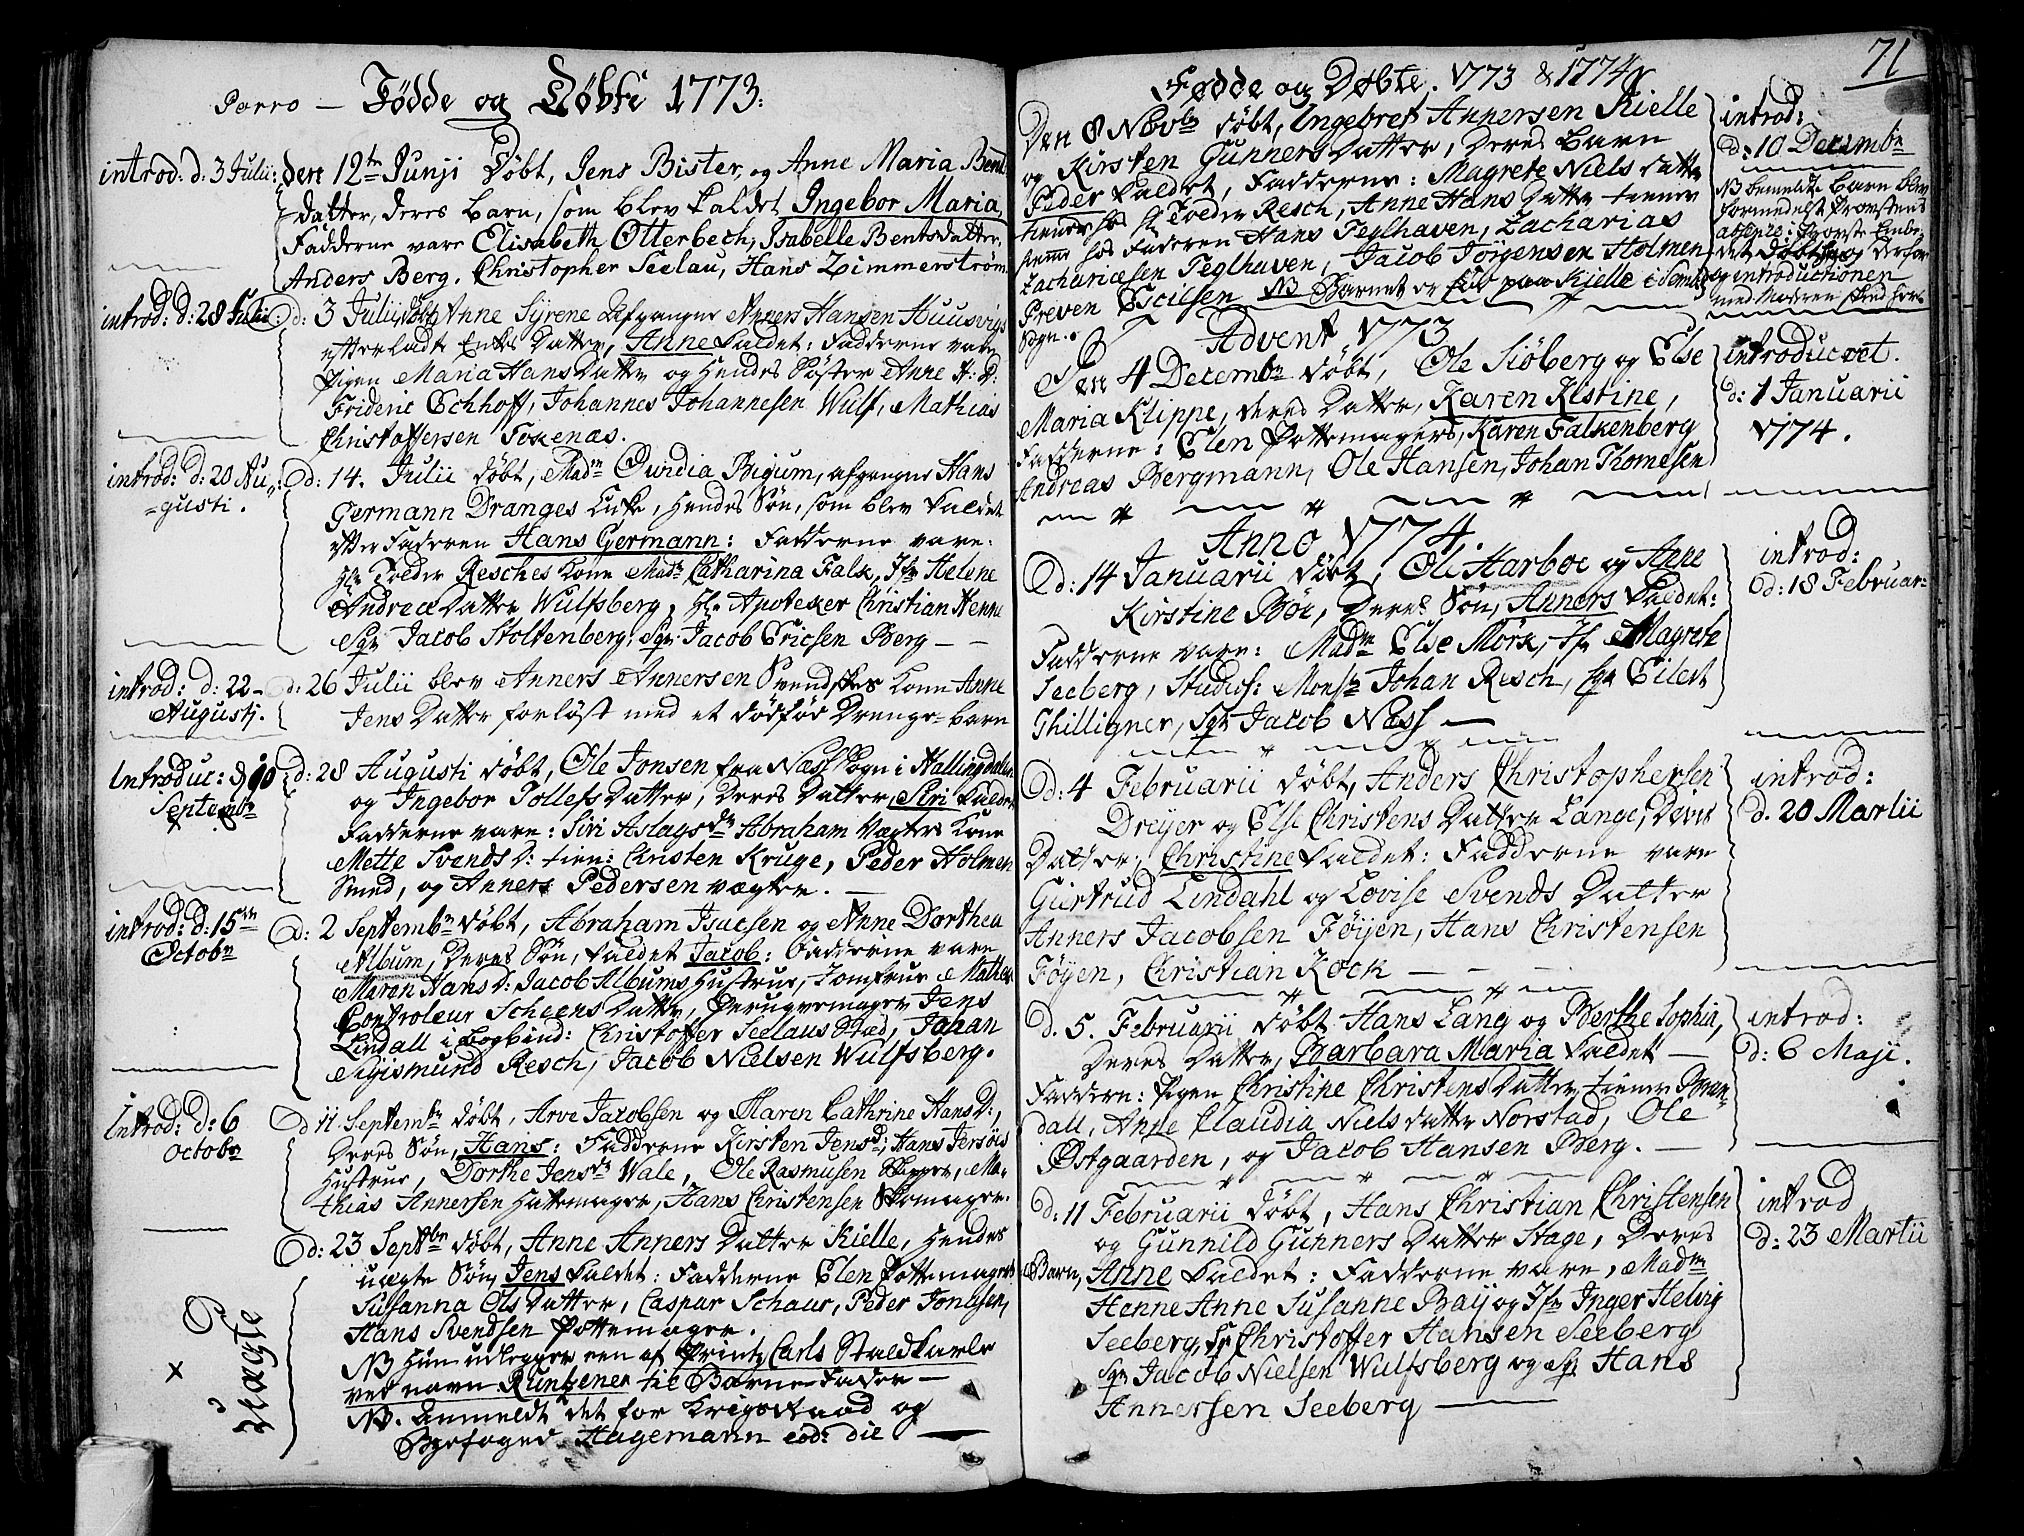 Porro — Födde og Döbte 1773:
introd: d. 3 Julii: den 12te Junji Döbt, Jens Bister, og Anne Maria Bents
datter, deres barn, som blev kaldet Ingebor Maria,
Fadderne vare Elisabeth Otterbech, Isabelle Bentsdatter,
Anders Berg. Christopher Seelau, Hans Zimmerström
introd: d: 28 Julii: d: 3 Julii döbt Anne Syrene Afgangne Anners Hansen Huusvigs
efterladte Enkes Datter, Anne kaldet: Fadderne vare
Pigen Maria Hans Datter og hendes Söster Anne H: D:
Frideric Echhoff, Johannes Johannesen Wulf, Mathias
Christoffersen Foxenæs.
introd: d: 20 Au-
=gusti.
d: 14. Julii döbt, Madm Ovidia Bigum, afgangne Hans
Germann Dranges Enke, hendes Sön, som blev kaldet
efter Faderen Hans Germann: Fadderne vare:
Hr Tolder Resches Kone Madm Catharina Falk, Jfr Helene
Andreæ Datter Wulfsberg, Hr Apoteker Christian Henne
Sgr Jacob Stoltenberg, Sgr Jacob Ericsen Berg — —
introd: d: 22 -
Augusti.
d: 26 Julii blev Anners Annersen Svendskes Kone Anne
Jens Datter forlöst med et dödföd Drenge=barn
Introduc: d 10
Septembr
d: 28 Augusti döbt, Ole Jonsen fra Næss Sogn i Hallingdalen
og Ingebor Tollefs Datter, deres Datter, Siri kaldet
Fadderne vare: Siri Aslags dr Abraham Vægters Kone
Mette Svends D: tien: Christen Kruge, Peder Holmen
Smed, og Anners Pedersen vægter. —
introd: d: 15de
Octobr
d: 2 Septembr döbt, Abraham Isacsen og Anne Dorthea
Album, deres Sön, kaldet Jacob: Fadderne vare
Maren Hans D: Jacob Albums Hustrue, Jomfrue Mathea
Controleur Scheens Datter, Peruqvemager Jens
Lindall i bogbind: Christoffer Seelaus Stæd, Johan
Sigismund Resch, Jacob Nielsen Wulfsberg.
Introd: d: 6
octobr
d 11 Septembr döbt, Arve Jacobsen og Maren Cathrine Hans D:,
deres Sön, Hans: Fadderne Kirsten Jens d: Hans Jersöes
Hustrue, Dorthe Jens dr Wale, Ole Rasmusen Skipper, Ma-
thias Annersen Hattemager, Hans Christensen Skomager.
d: 23 Septbr döbt, Anne Anners Datter Kielle, hendes
uægte Sön, Jens kaldet: Fadderne Elen Pottemagers
Susanna Ols Datter, Caspar Schaur, Peder Jonesen,
Hans Svendsen Pottemager.
NB hun udlegger een af Printz Carls Staldkarle
ved navn Runtzener til Barne-Fader —
NB. Anmeldt det for Krigsraad og
Byefoged Hagemann eod: die —
Uægte
x
71
Fødde og Døbte. 1773 & 1774
Den 8 Novbr døbt, Ingebret Annersen Kielle
og Kirsten Gunners Datter, deres barn
Peder kaldet, Fadderne: Magrete Niels datter
tiener hos Hr Tolder Resch, Anne Hans datter tiener
samme hos Faderen Hans Teglhaven, Zacharias
Zachariæsen Teglhaven, Jacob Jörgensen Holmen
Preven Escilsen NB Barnet er föd paa Kielle i Sems
Sogn..
introd:
d: 10 Decembr
NB bemeldte barn blev
formedelst Provstens
absence i Provste Embe-
det döbt og derfor
og introductionen
med Moderen skeed her
Advent 1773
Den 4 Decembr döbt, Ole Siöberg og Else
Maria Klippe, deres Datter, Karen Kistine,
Fadderne: Elen Pottemagers, Karen Falkenberg
Andreas Bergmann, Ole Hansen, Johan Thomesen
introduceret.
d: 1 Januarii
1774.
Anno 1774
d: 14 Januarii döbt, Ole Harboe og Anne
Kirstine Böe, deres Sön, Anners kaldet:
Fadderne vare: Madm Else Mörk, Jfr Magrete
Seeberg, Studios: Monsr Johan Resch, Sgr Eilert
Thilligner, Sgr Jacob Næss —
introd:
d: 18 Februar:
d: 4 Februarii döbt, Anders Christophersen
Dreyer og Else Christens Datter Lange, deres
Datter, Christine kaldet: Fadderne vare
Giertrud Lindahl og Lovise Svends Datter
Anners Jacobsen Föyen, Hans Christensen
Föyen, Christian Kock — — —
introd:
d. 20 Martii
d. 5. Februarii döbt Hans Lang og Berthe Sophia,
deres Datter, Barbara Maria kaldet —
Faddere: Pigen Christine Christens Datter tiener Bran-
dall, Anne Claudia Niels datter Norstad, Ole
Østgaarden, og Jacob Hansen Berg. —
introd:
d: 6 Maji.
d: 11 Februarii döbt, Hans Christian Christensen
og Gunnild Gunners Datter Stage, deres
Barn, Anne kaldet: Fadderne vare, Madm
Henne Anne Susanne Baÿ og Jfr Inger Helvig
Seeberg, Sr Christoffer Hansen Seeberg
Sgr Jacob Nielsen Wulfsberg og Sgr Hans
Annersen Seeberg —
introd
d: 23 Martii